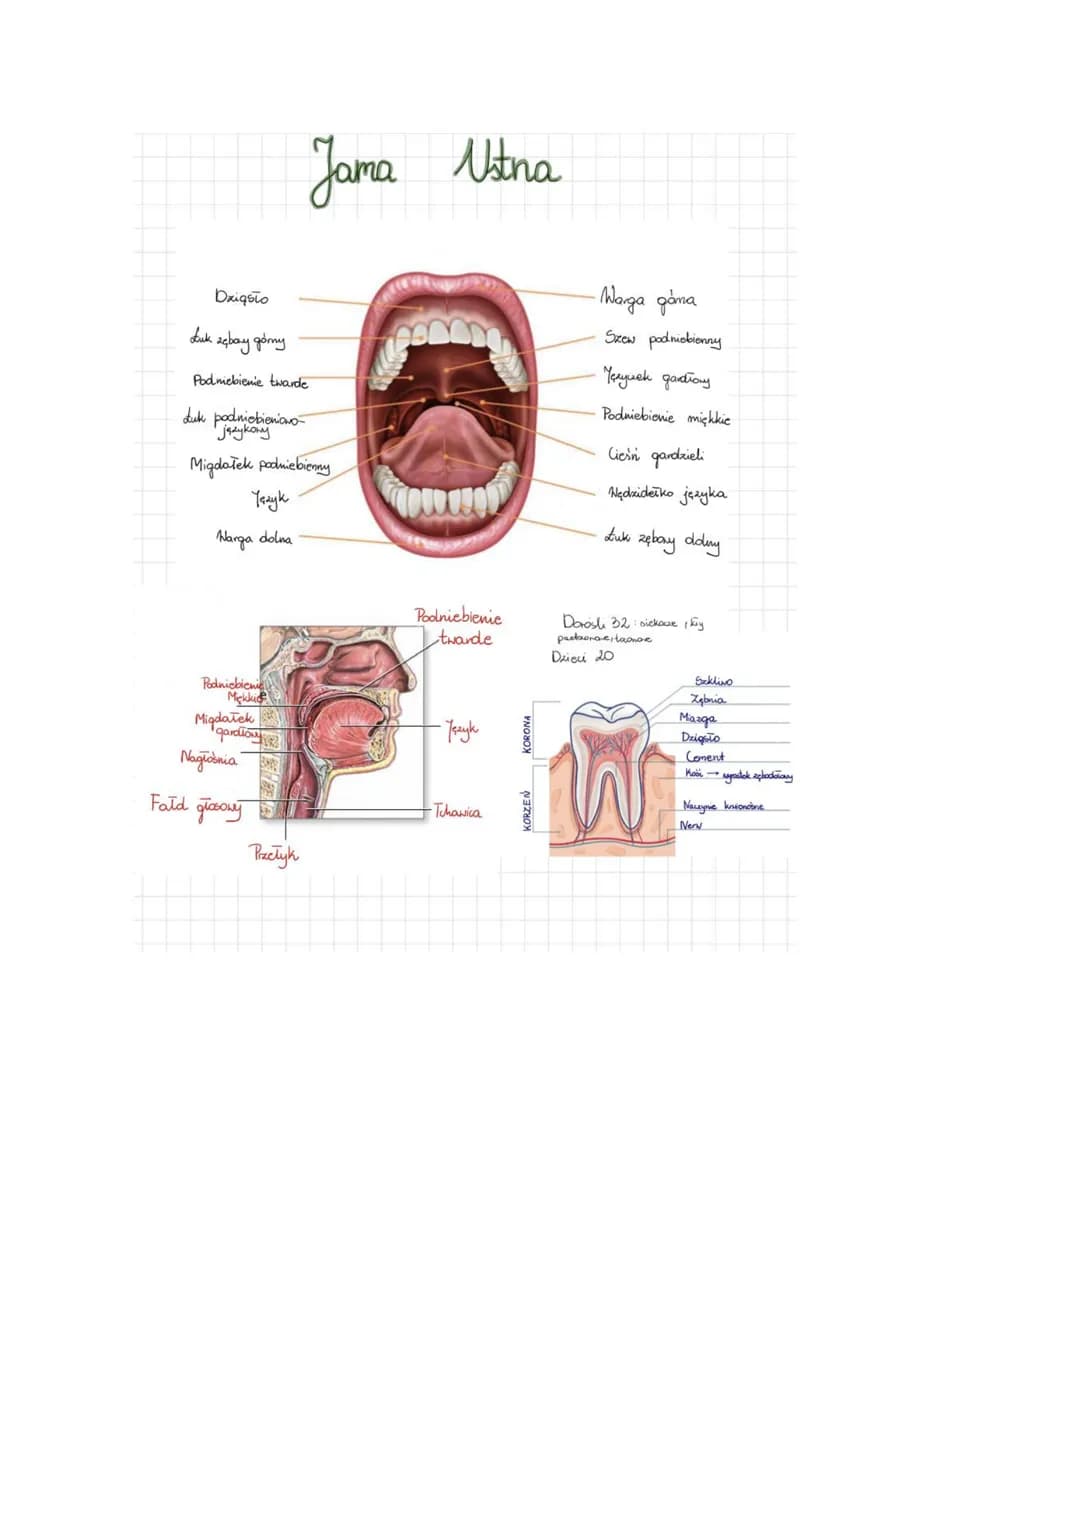 Jama Ustna
Dziąsło
Łuk zębowy górny
Podniebienie twarde
Łuk podniebieniowo-
językowy
Migdałek podniebienny
Język
Warga dolna
Warga górna
Szew podniebienny
Języczek gardłowy
Podniebienie miękkie
Cieśń gardzieli
Wędzidełko języka
Łuk zębowy dolny
Podniebienie
twarde
Podniebienie
Miękkie
Migdałek
gardłowy
Nagłośnia
Fałd głosowy
Przełyk
Język
Tchawica
Dorośli 32 : siekacze, kły
przedtrzonowe, trzonowe
Dzieci 20
KORONA
KORZEŃ
Szkliwo
Zębina
Miazga
Dziąsło
Cement
Kość → wyrostek zębodołowy
Naczynie krwionośne
Nerw